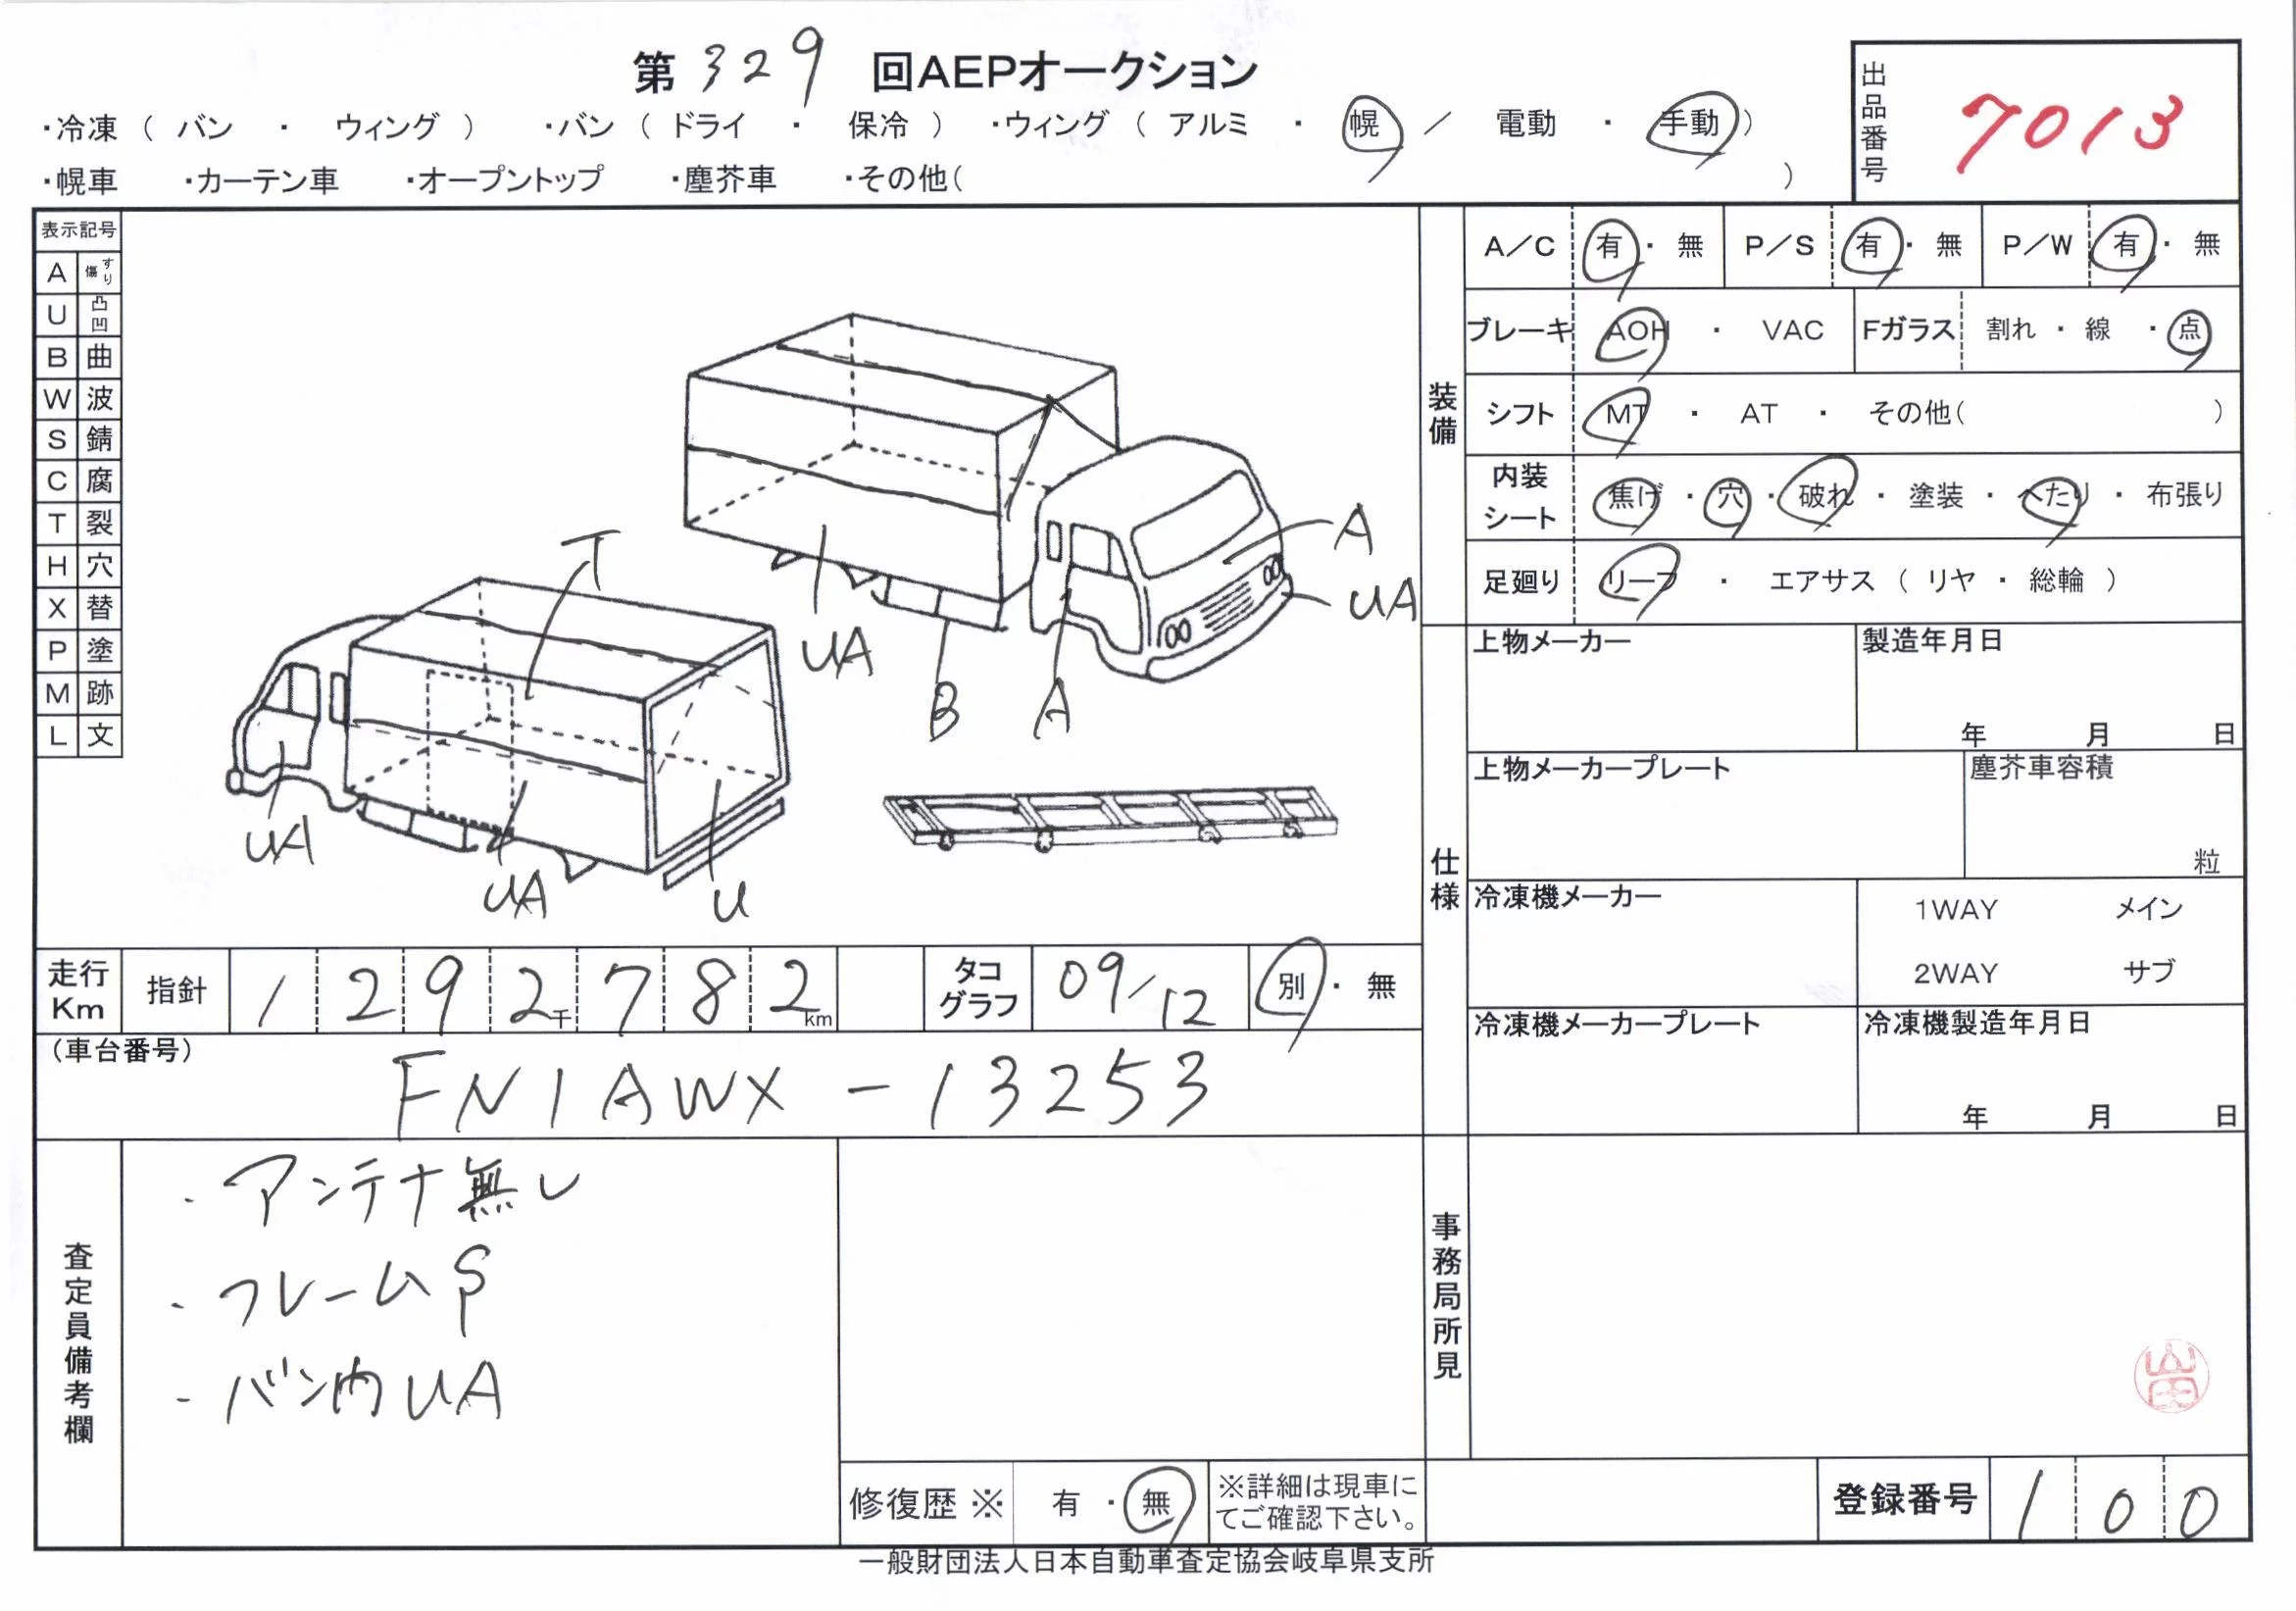 第329回AEPオークション
・冷凍（ バン ・ ウィング ） ・バン（ ドライ ・ 保冷 ） ・ウィング（ アルミ ・ 幌 ／ 電動 ・ 手動 ）
・幌車 ・カーテン車 ・オープントップ ・塵芥車 ・その他（ ）
出品番号 7013
表示記号
A すり傷
U 凸凹
B 曲
W 波
S 錆
C 腐
T 裂
H 穴
X 替
P 塗
M 跡
L 文
A
UA
UA
B
A
T
UA
UA
U
装備
A／C 有・無 P／S 有・無 P／W 有・無
ブレーキ AOH ・ VAC Fガラス 割れ・線・点
シフト MT ・ AT ・ その他（ ）
内装シート 焦げ・穴・破れ・塗装・へたり・布張り
足廻り リーフ ・ エアサス（ リヤ ・ 総輪 ）
仕様
上物メーカー 製造年月日
年 月 日
上物メーカープレート 塵芥車容積
粒
冷凍機メーカー 1WAY メイン
2WAY サブ
冷凍機メーカープレート 冷凍機製造年月日
年 月 日
走行Km 指針 1292千782km タコグラフ 09/12 別・無
（車台番号）
FN1AWX-13253
査定員備考欄
・アンテナ無し
・フレームS
・バン内UA
事務局所見
山田
修復歴 ※ 有・無 ※詳細は現車にてご確認下さい。
登録番号 100
一般財団法人日本自動車査定協会岐阜県支所